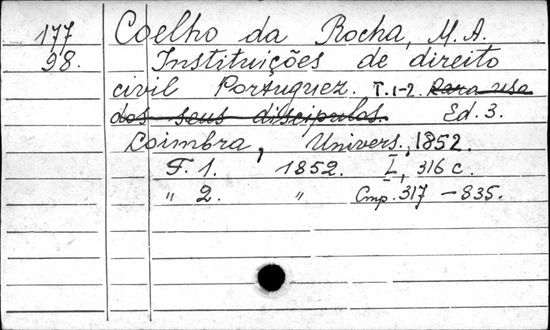 177 Coelho da Rocha, M.A.
98. Instituições de direito
civil Portuguez. T.1-2. Para uso
dos seus discipulos. Ed.3.
Coimbra, Univers., 1852.
F. 1. 1852. I, 316 c.
" 2. " Cmp. 317 – 835.